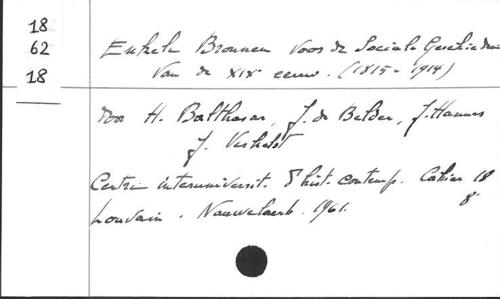 18
62
18
Enkele Bronnen voor de Sociale Geschieden
van de XIXe eeuw. (1815-1914)
door H. Balthasar, J. de Belder, J. Hannes
J. Verhelst
Centre interuniversit. d'hist. contemp. Cahier 18
8°
Louvain. Nauwelaerts. 1961.